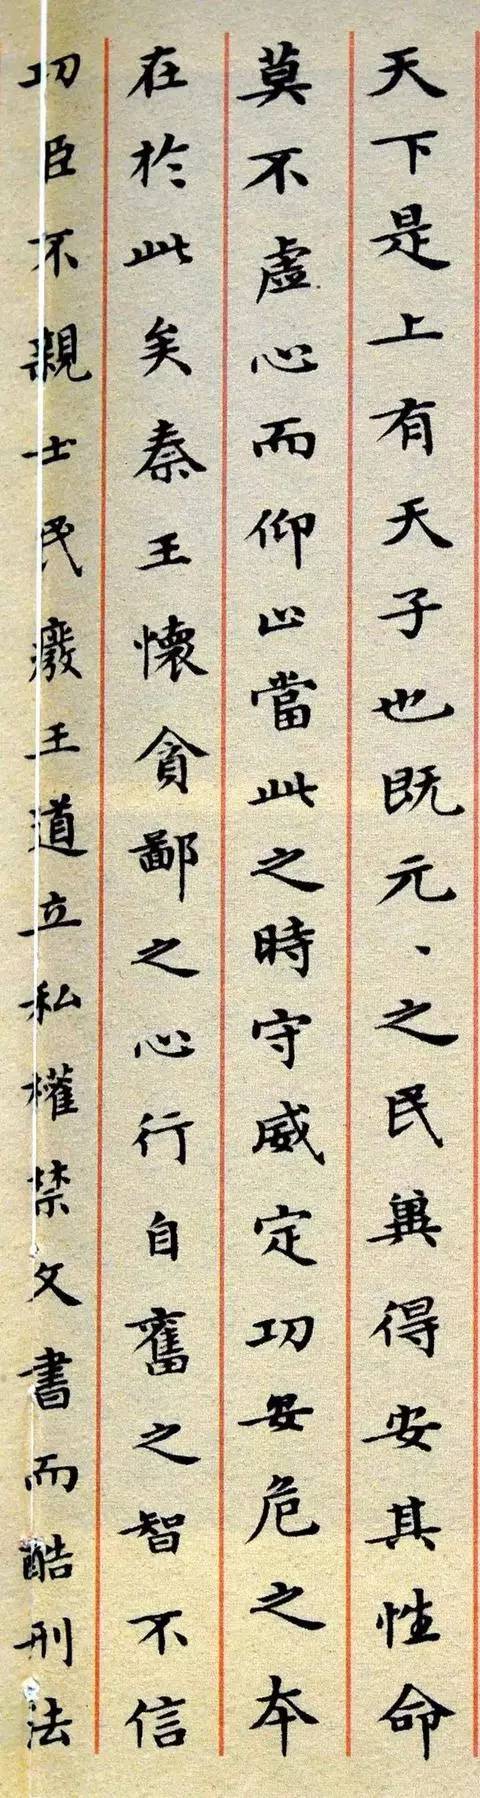 天下是上有天子也既元、之民冀得安其性命
莫不虚心而仰止當此之時守威定功安危之本
在於此矣秦王懷貪鄙之心行自奮之智不信
功臣不親士民廢王道立私權禁文書而酷刑法